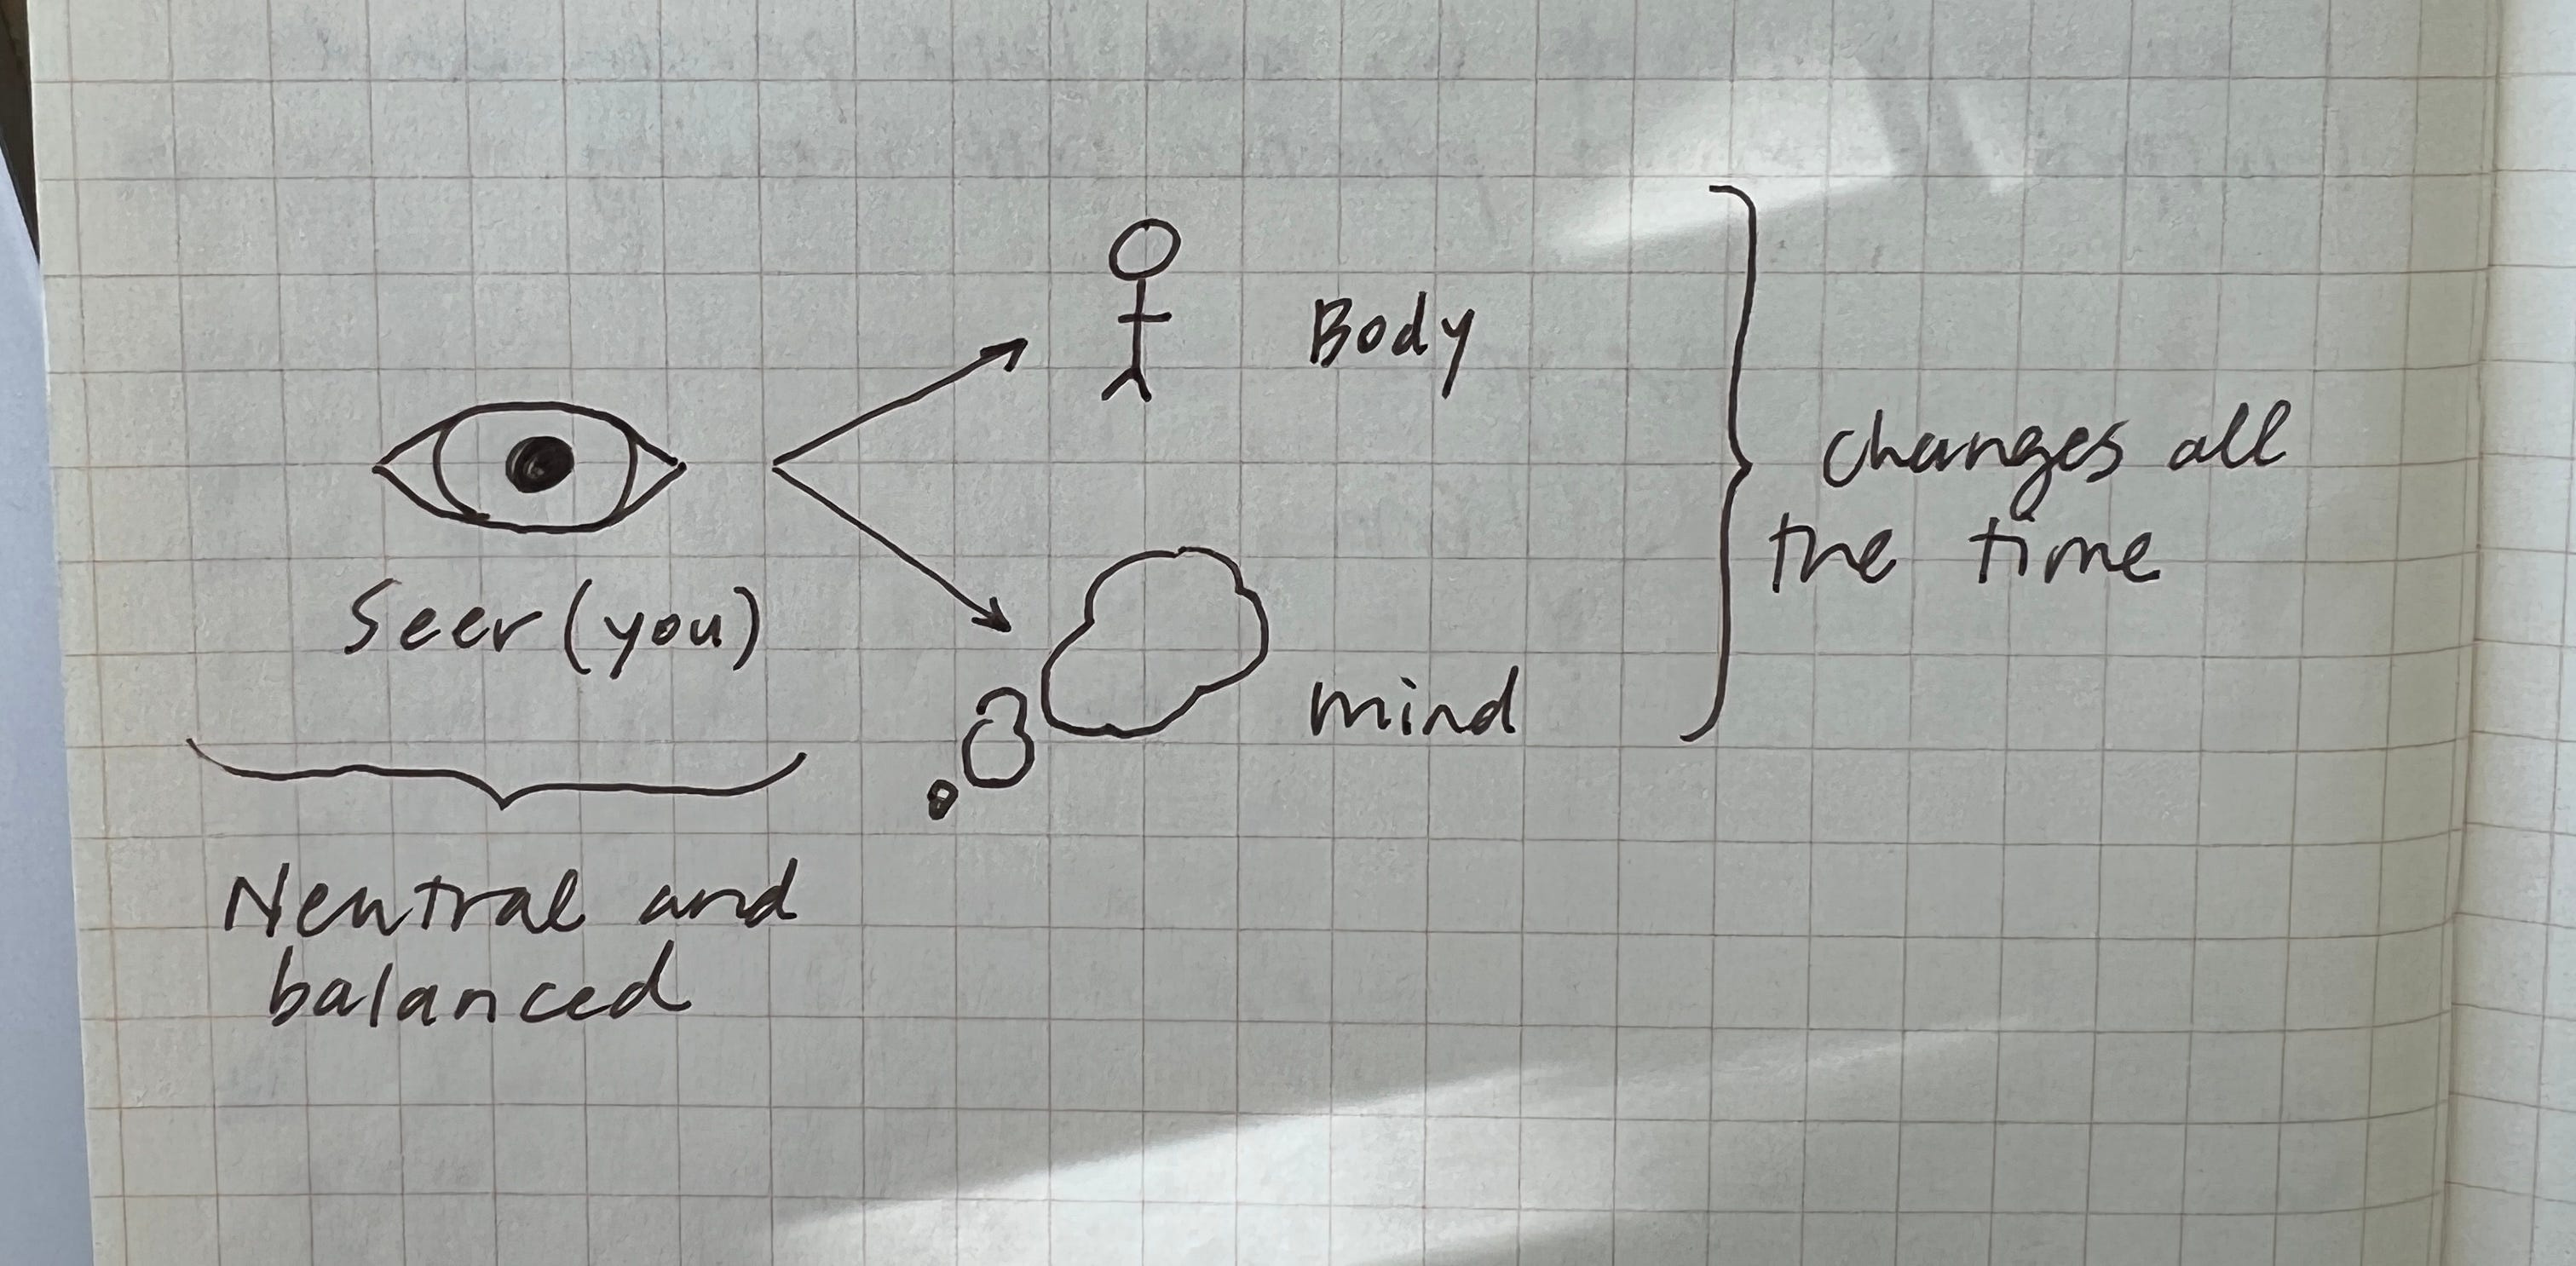 Body
changes all
the time
Seer (you)
mind
Neutral and
balanced